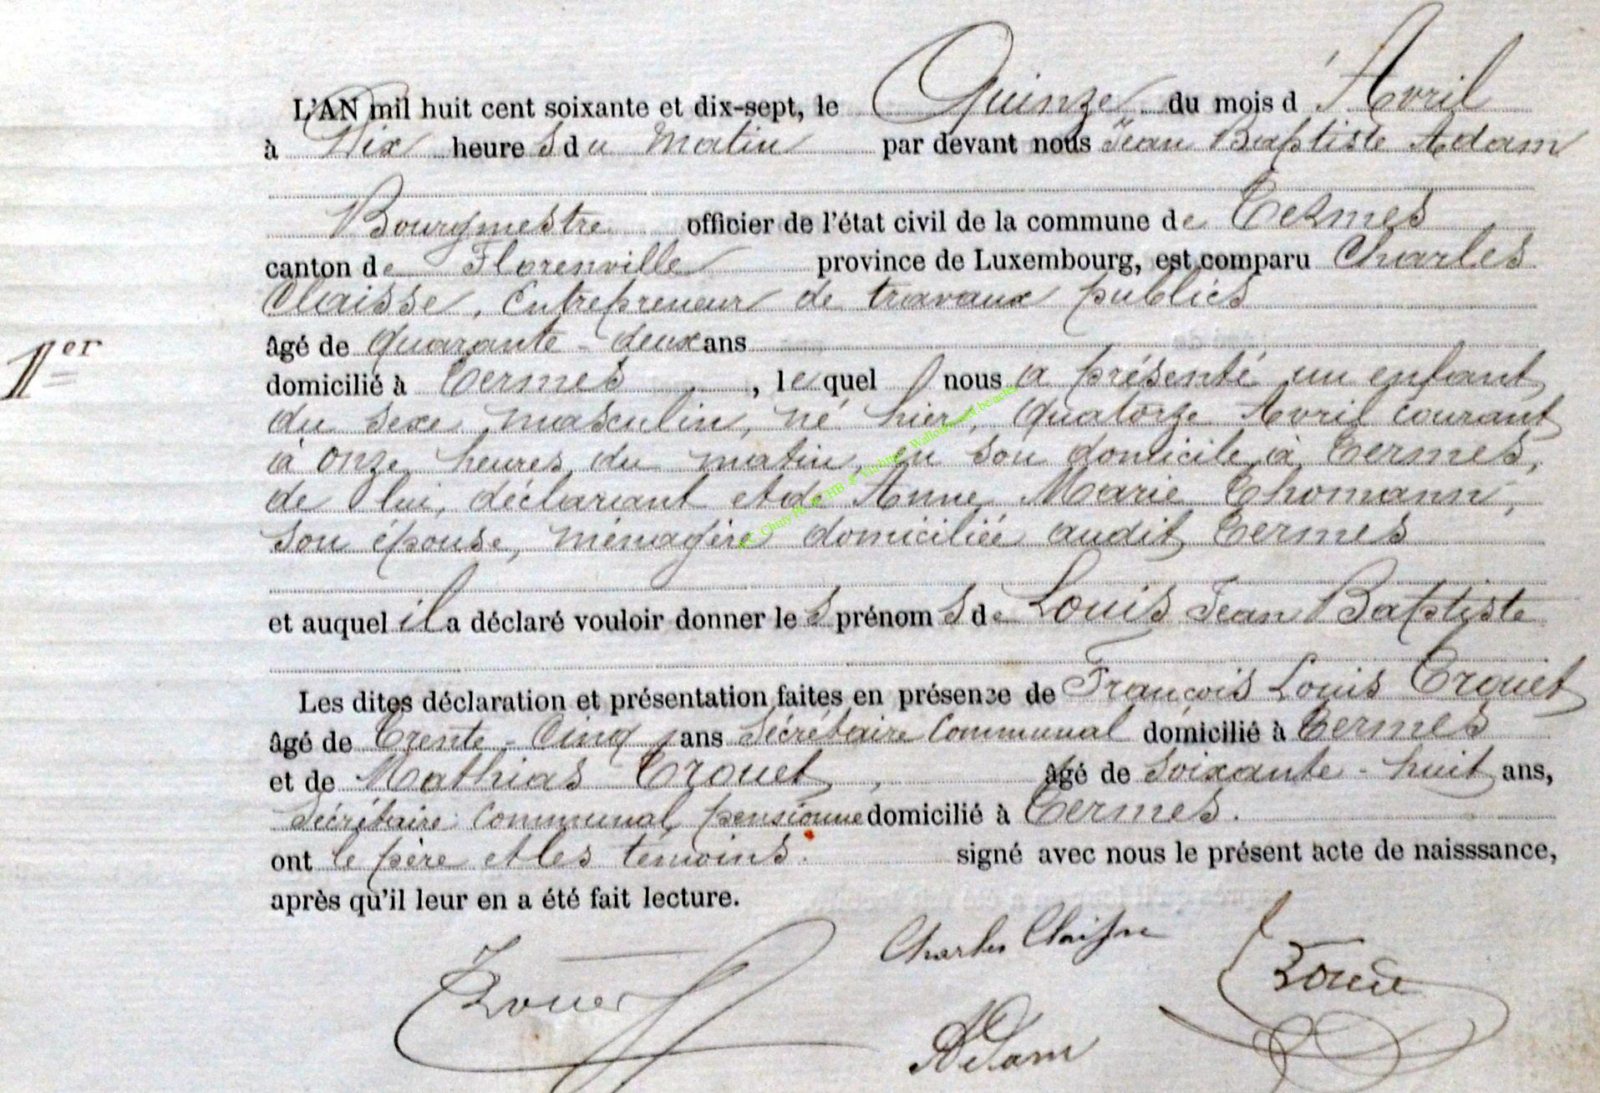 L'AN mil huit cent soixante et dix-sept, le Quinze du mois d'Avril
à Dix heures du Matin par devant nous Jean Baptiste Adam
Bourgmestre officier de l'état civil de la commune de Termes
canton de Florenville province de Luxembourg, est comparu Charles
Claisse, Entrepreneur de travaux publics
âgé de quarante-deux ans
1er
domicilié à Termes, lequel nous a présenté un enfant
du sexe masculin, né hier, quatorze Avril courant
à onze heures du matin, en son domicile à Termes,
de lui, déclarant et de Anne Marie Thomann,
son épouse, ménagère domiciliée audit Termes
et auquel il a déclaré vouloir donner les prénoms de Louis Jean Baptiste
Les dites déclaration et présentation faites en présence de François Louis Trouet
âgé de Trente-Cinq ans Sécrétaire Communal domicilié à Termes
et de Mathias Trouet, âgé de Soixante-huit ans,
Sécrétaire Communal pensionne domicilié à Termes.
ont le père et les témoins. signé avec nous le présent acte de naisssance,
après qu'il leur en a été fait lecture.
Trouet Charles Claisse Trouet
Adam